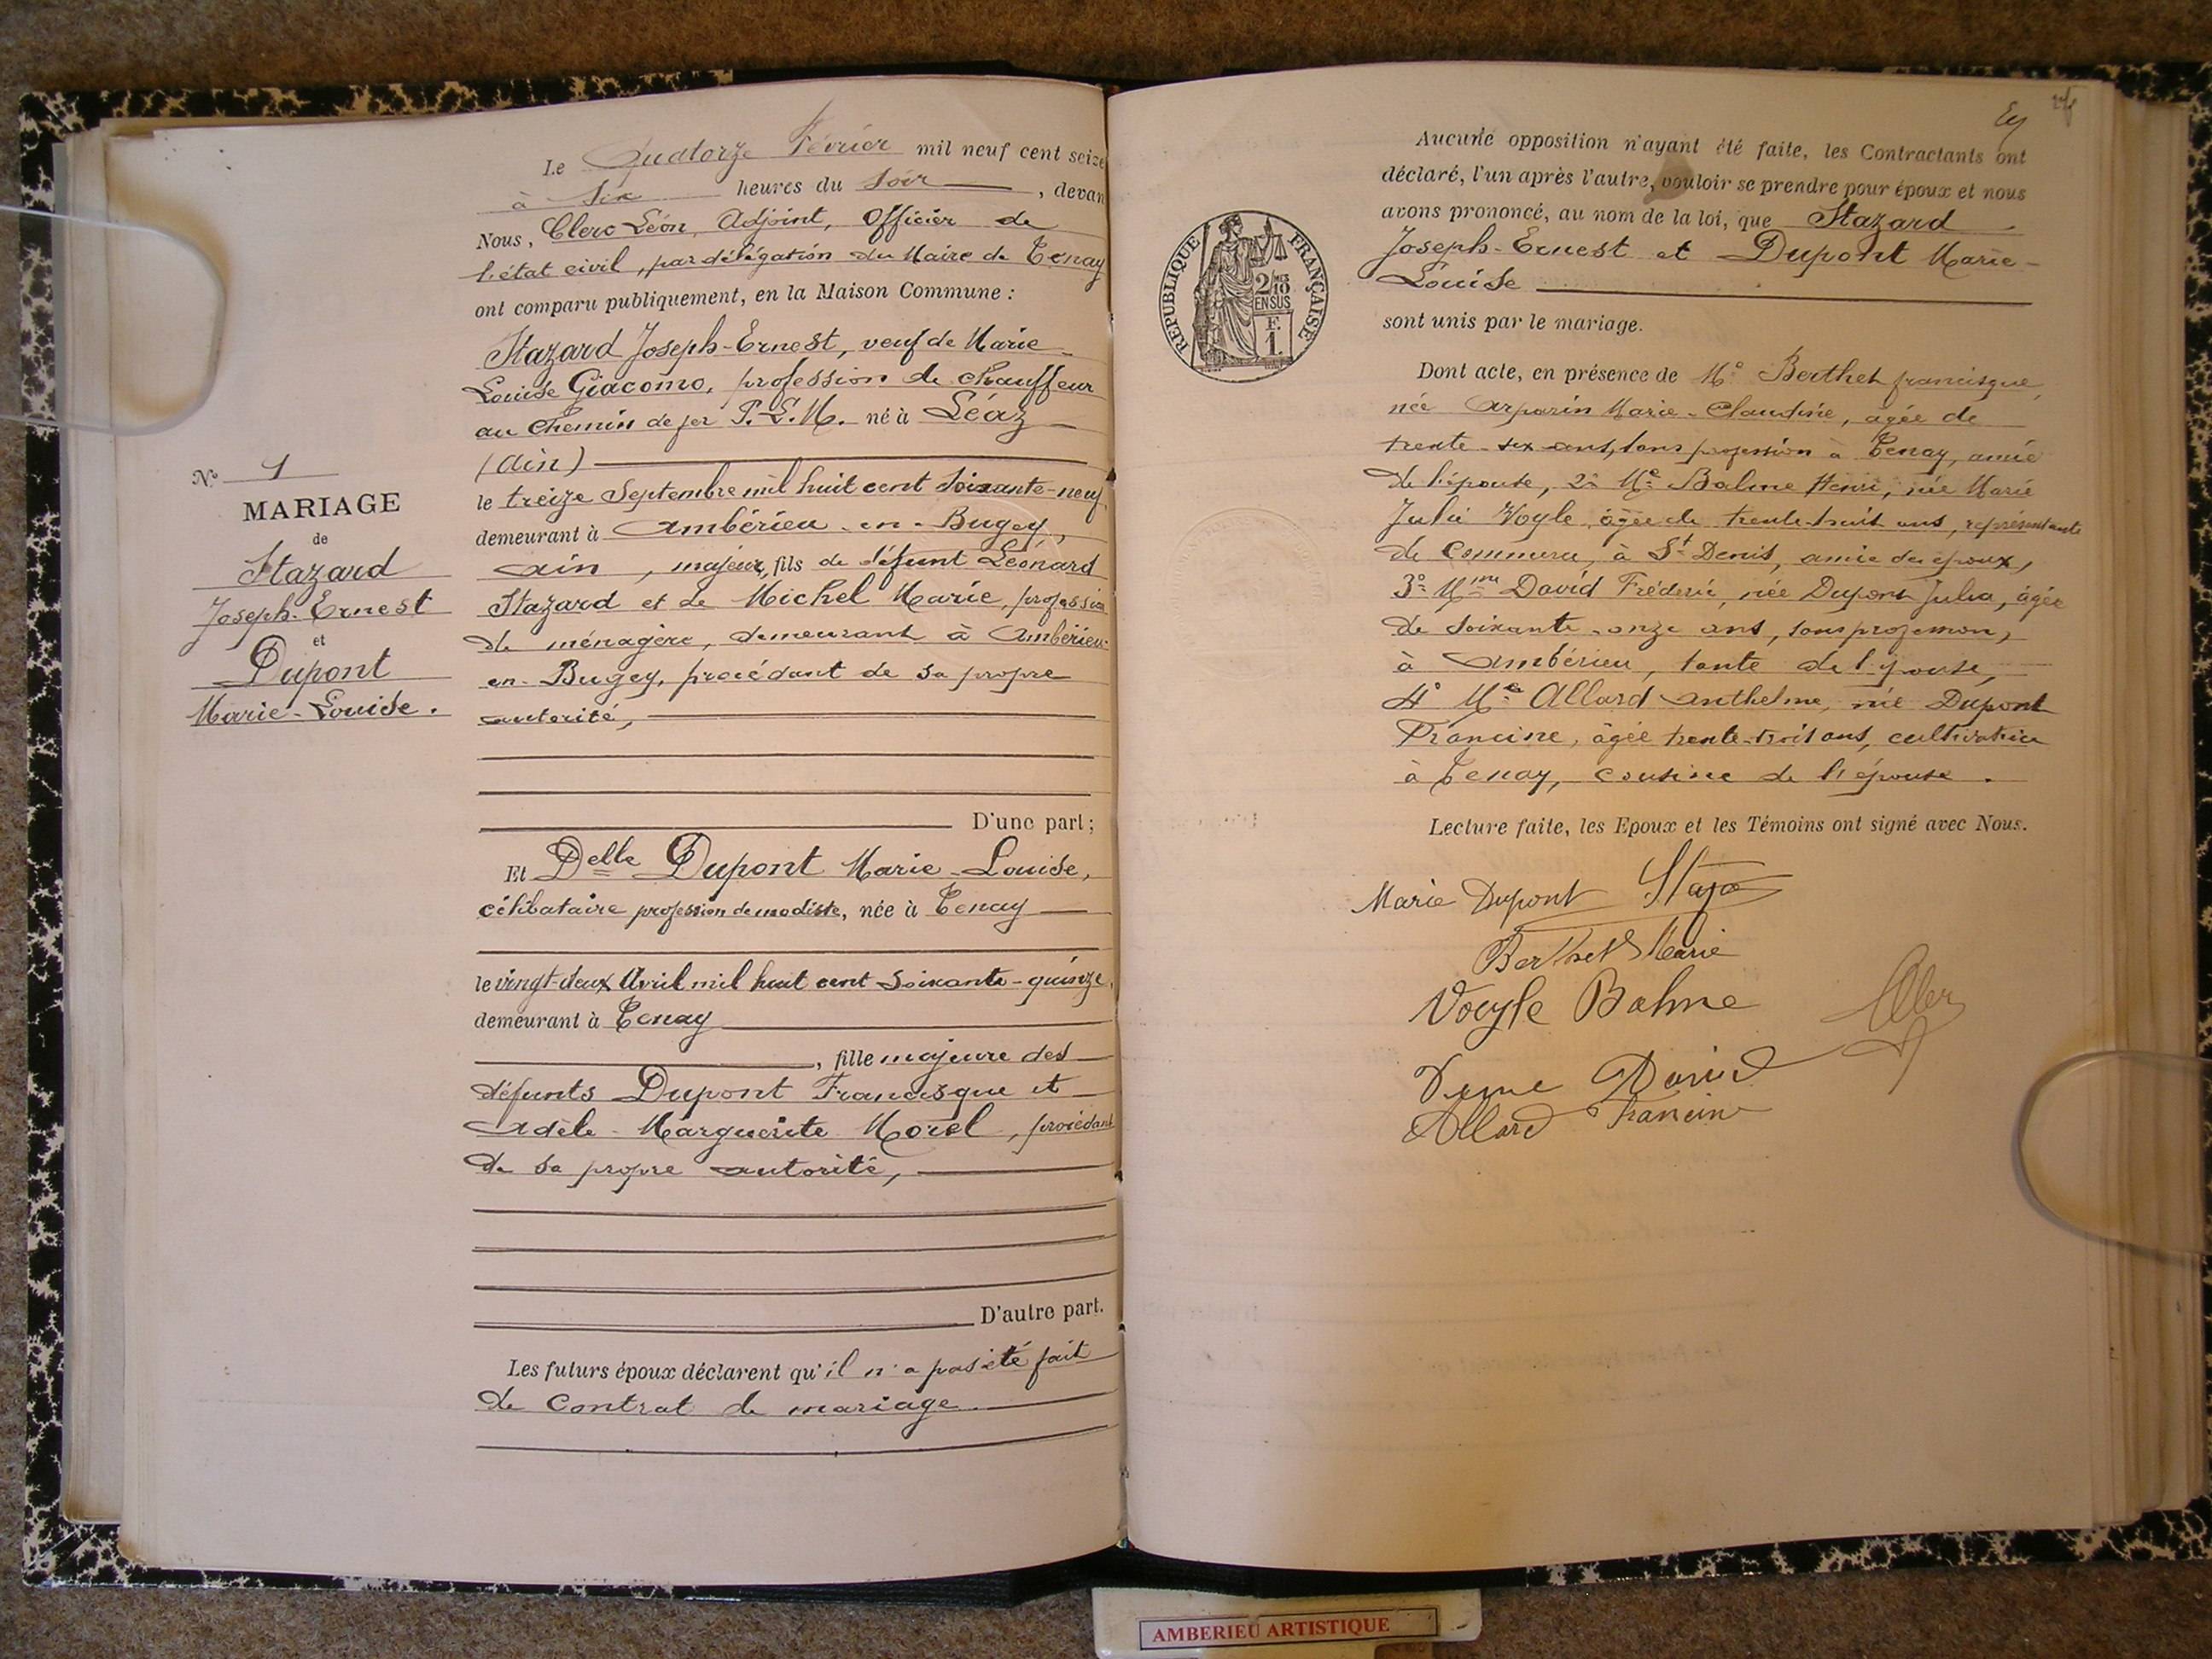 Le Quatorze Février mil neuf cent seize
à Six heures du Soir, devan
Nous, Clerc Léon, Adjoint, Officier de
l'état civil, par délégation du Maire de Tenay
ont comparu publiquement, en la Maison Commune :
Stazard Joseph-Ernest, veuf de Marie
Louise Giacomo, profession de chauffeur
au Chemin de fer P.L.M. né à Léaz
(Ain)
le treize Septembre mil huit cent Soixante-neuf
demeurant à Ambérieu-en-Bugey,
Ain, majeur, fils de défunt Léonard
Stazard et de Michel Marie, profession
de ménagère, demeurant à Ambérieu-
en-Bugey, procédant de sa propre
autorité,
D'une part;
Et Delle Dupont Marie-Louise,
célibataire profession de modiste, née à Tenay
le vingt-deux Avril mil huit cent Soixante-quinze,
demeurant à Tenay
, fille majeure des
défunts Dupont Francisque et
Adèle-Marguerite Morel, procédant
de sa propre autorité,
D'autre part.
Les futurs époux déclarent qu'il n'a pas été fait
de Contrat de mariage.
N° 1
MARIAGE
de
Stazard
Joseph-Ernest
et
Dupont
Marie-Louise.
Aucune opposition n'ayant été faite, les Contractants ont
déclaré, l'un après l'autre, vouloir se prendre pour époux et nous
avons prononcé, au nom de la loi, que Stazard
Joseph-Ernest et Dupont Marie-
Louise
sont unis par le mariage.
Dont acte, en présence de Me Berthet francisque,
née Arparin Marie-Claudine, agée de
trente-six ans, sans profession à Tenay, amie
de l'épouse, 2° Me Balme Henri, née Marie
Julie Voyle, âgée de trente-huit ans, représentante
de commerce, à St Denis, amie des époux,
3° Mme David Frédéric, née Dupont Julia, âgée
de soixante-onze ans, sans profession,
à Ambérieu, tante de l'épouse,
4° Me Allard Anthelme, née Dupont
Francine, âgée trente-trois ans, cultivatrice
à Tenay, cousine de l'épouse.
Lecture faite, les Epoux et les Témoins ont signé avec Nous.
Marie Dupont
Berthet Marie
Voeyle Balme
David
Allard Francine
REPUBLIQUE FRANÇAISE
2/10 EN SUS
F.
1.
AMBERIEU ARTISTIQUE